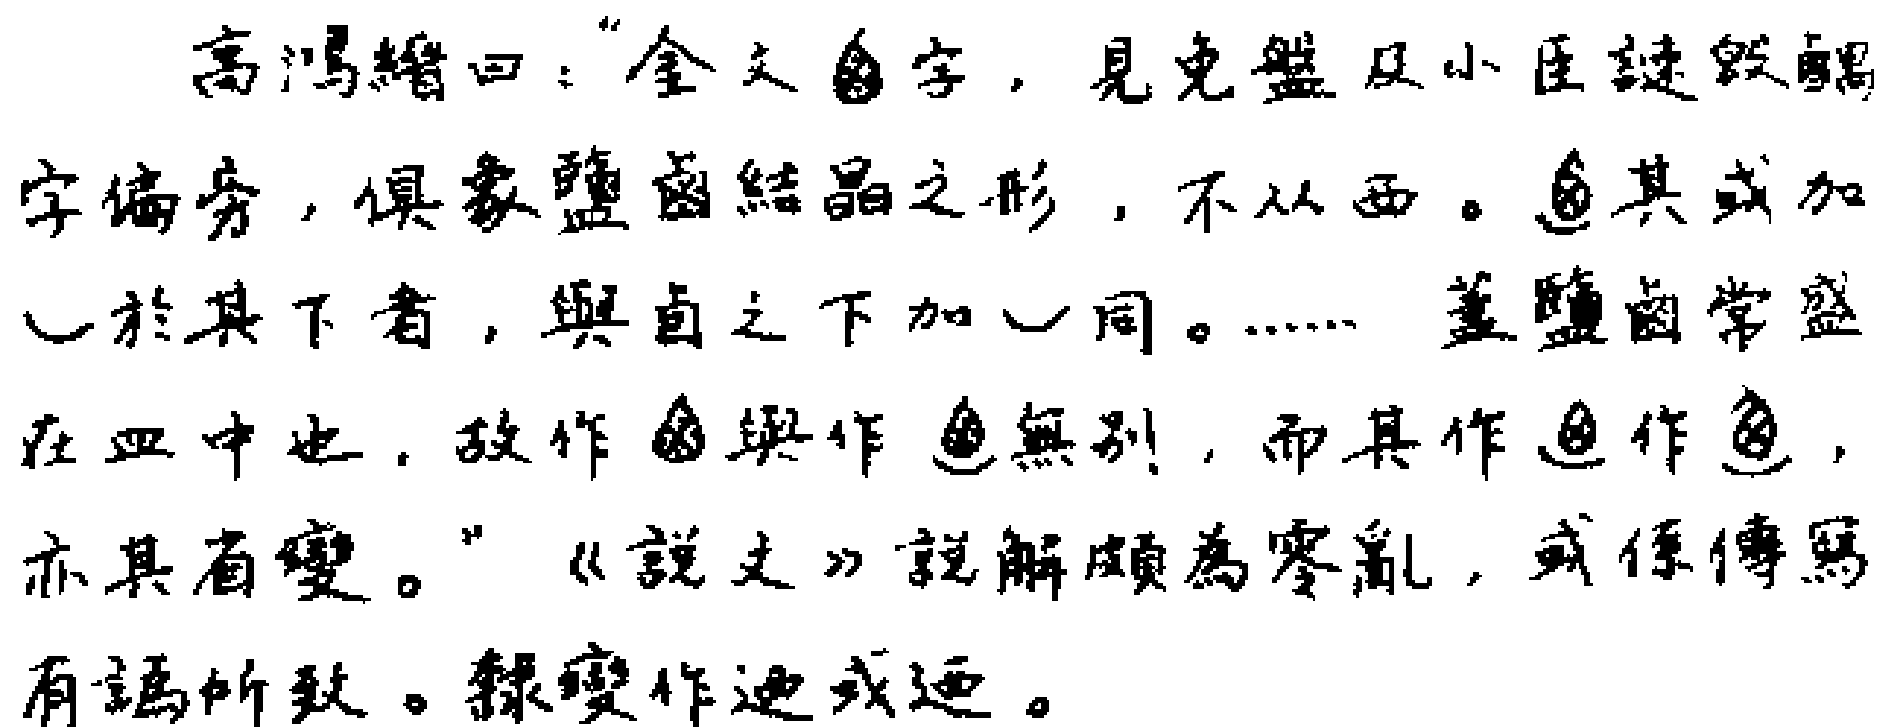 高鴻縉曰：“金文字，見免盤及小臣謎𣪘䚇
字偏旁，俱象鹽鹵結晶之形，不从西。其或加
於其下者，與卣之下加同。…… 蓋鹽鹵常盛
在皿中也，故作與作無别，而其作作，
亦其省變。”《說文》說解頗為零亂，或係傳寫
有譌所致。隸變作迺或逎。